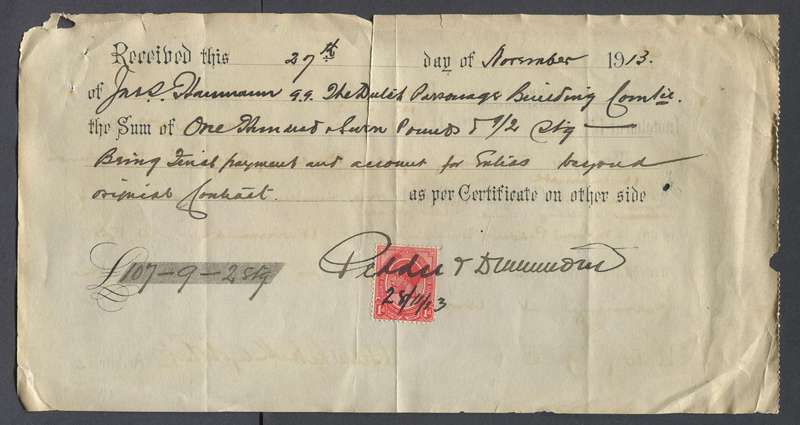 Received this 27th day of November 1913.
of Jas. S. Hannmann q.q. The Dutch Parsonage Building Comtie.
the Sum of One Hundred & Seven Pounds & 9/2 Stg
Being Final payment and account for Extras beyond
original Contract. as per Certificate on other side
£107-9-2 Stg
Pedder & Drummond
28/11/13